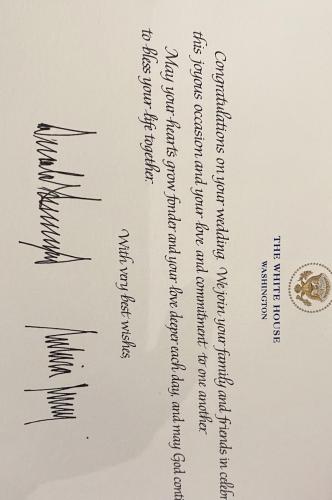 THE WHITE HOUSE
WASHINGTON
Congratulations on your wedding. We join your family and friends in celebr
this joyous occasion and your love and commitment to one another.
May your hearts grow fonder and your love deeper each day, and may God conti
to bless your life together.
With very best wishes,